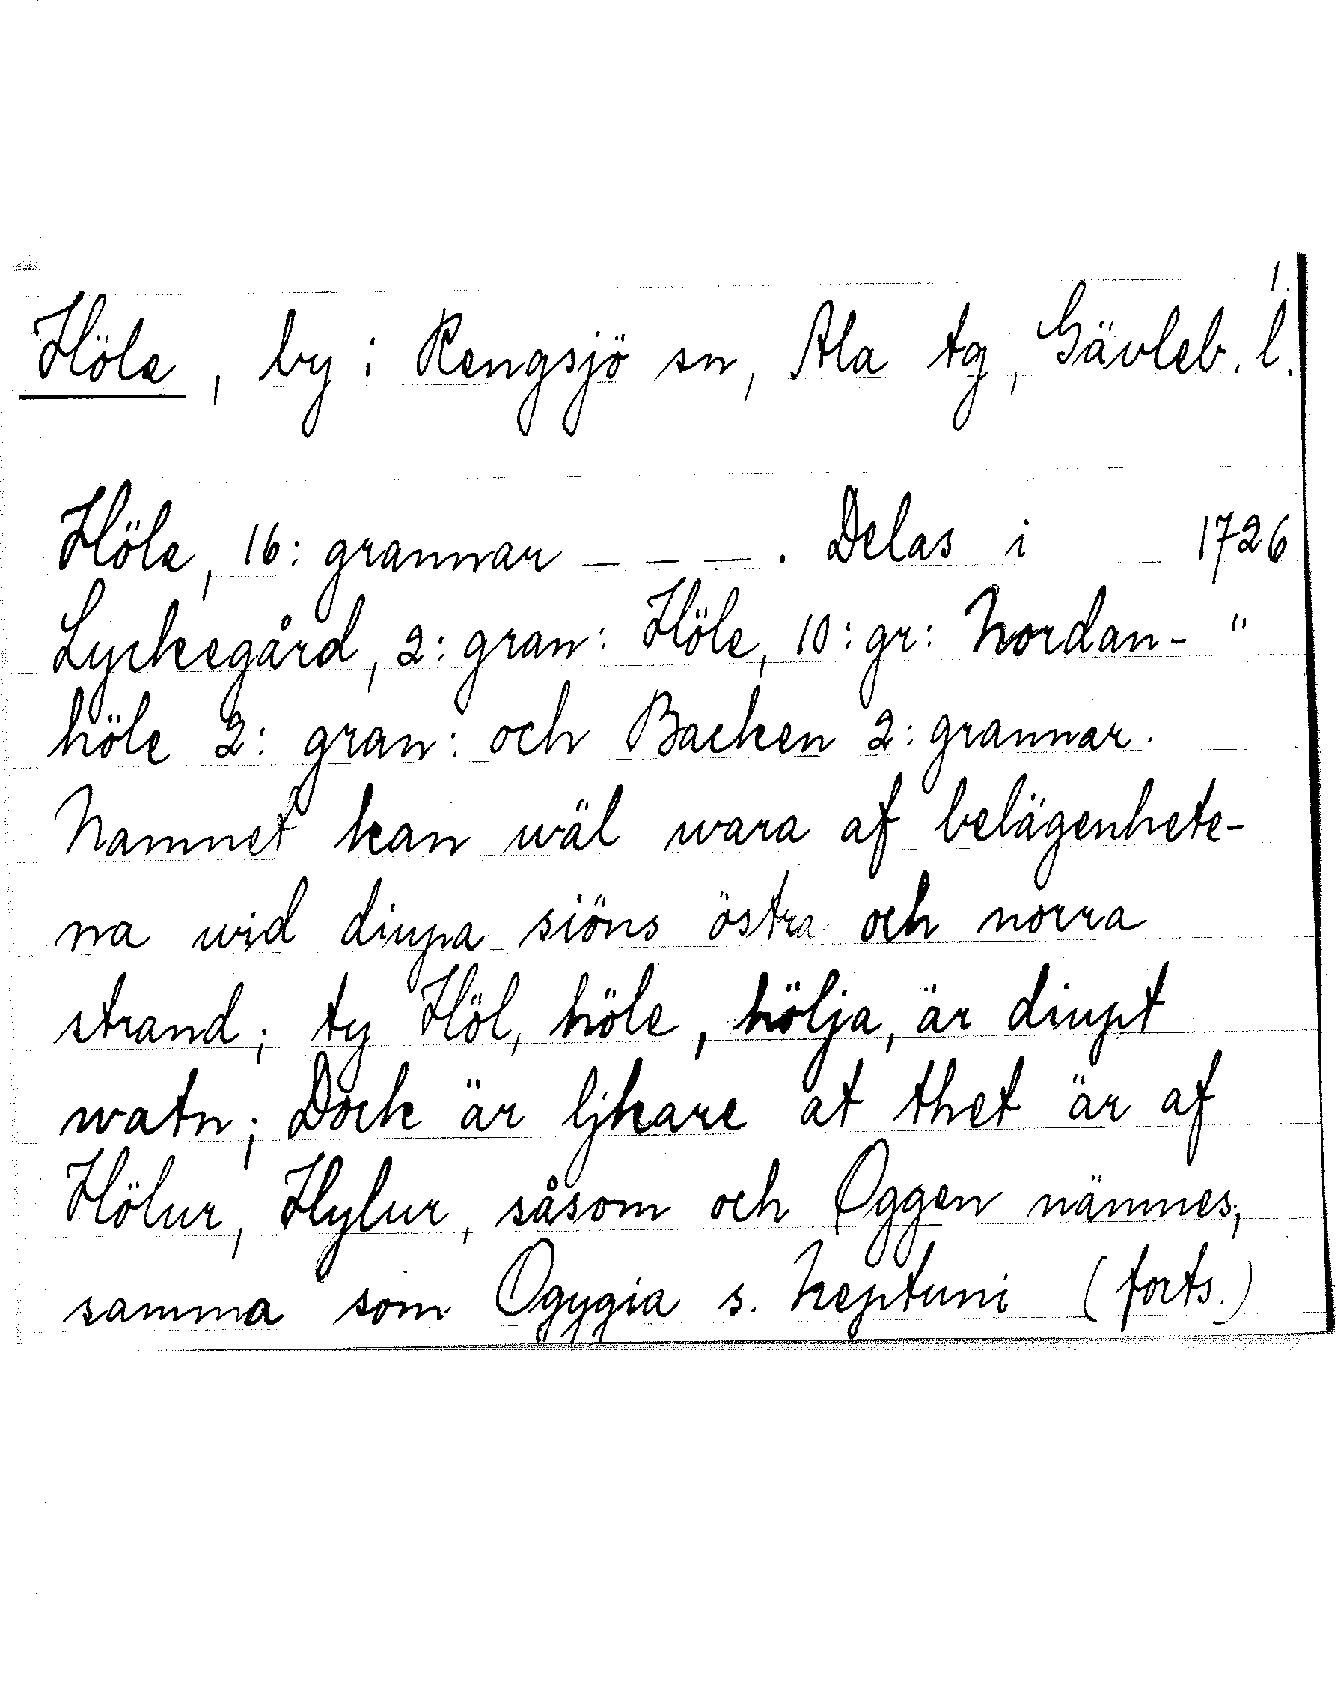 1.
Höle, by i Rengsjö sn, Ala tg, Gävleb. l.
Höle, 16: grannar _ _ __. Delas i 1726
Lyckegård, 2: gran: Höle, 10: gr: Nordan- "
höle 2: gran: och Backen 2: grannar.
Namnet kan wäl wara af belägenhete-
na wid diupa siöns östra och norra
strand; ty Höl, höle, hölja, är diupt
watn; Dock är ljkare at thet är af
Hölur, Hylur, såsom och Oggen nämnes,
samma som Ogygia s. Neptuni (forts.)